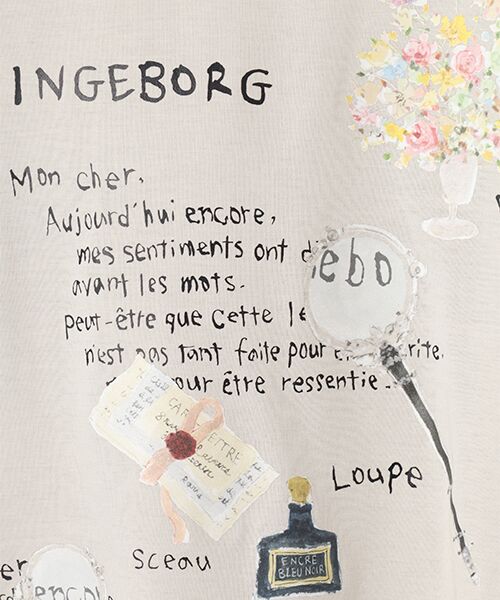 INGEBORG
Mon cher,
Aujourd'hui encore,
mes sentiments ont
avant les mots.
Peut-être que cette
n'est pas tant faite pour
pour être ressentie.
ebo
CARTE LETTRE
Loupe
Sceau
ENCRE
BLEU NOIR